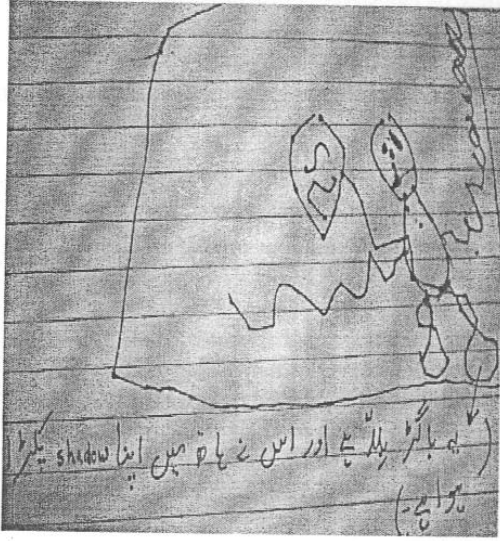 (یہ باگڑ بِلّا ہے اور اس نے ہاتھ میں اپنا shadow پکڑا
ہوا ہے۔)